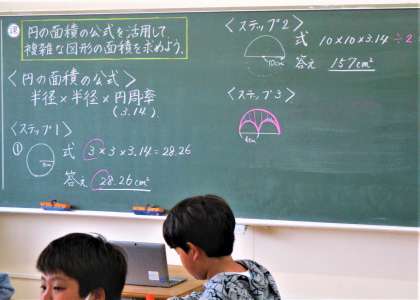 課 円の面積の公式を活用して
複雑な図形の面積を求めよう。
〈円の面積の公式〉
半径×半径×円周率
(3.14)
〈ステップ1〉
① 式 3×3×3.14=28.26
3cm
答え 28.26cm²
〈ステップ2〉
式 10×10×3.14÷2
10cm
答え 157cm²
〈ステップ3〉